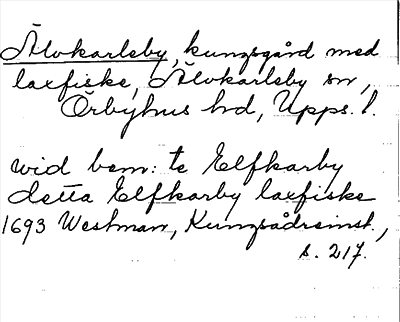 Älvkarleby, kungsgård med
laxfiske, Älvkarleby sn,
Örbyhus hd, Upps. l.
wid bem: te Elfkarby
detta Elfkarby laxfiske
1693 Westman, Kungsådreinst.,
s. 217.